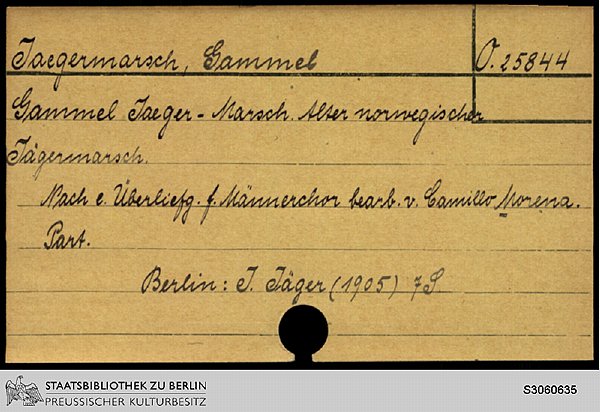 Jaegermarsch, Gammel
O. 25844
Gammel Jaeger-Marsch. Alter norwegischer
Jägermarsch.
Nach e. Überliefg. f. Männerchor bearb. v. Camillo Morena.
Part.
Berlin: J. Jäger (1905) 7 S.
STAATSBIBLIOTHEK ZU BERLIN
PREUSSISCHER KULTURBESITZ
S3060635